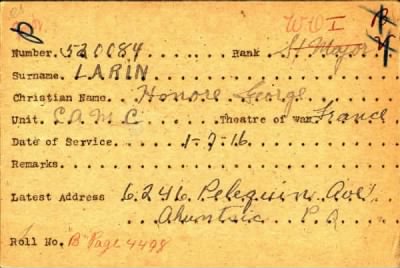 WW I
Number. 520084 Rank St Major
Surname. LARIN
Christian Name. Honore George
Unit. C.A.M.C. Theatre of war. France
Date of Service. 1-7-16
Remarks.
Latest Address 6246 Peleguin Ave.
Ahuntsic P.Q.
Roll No. "B" Page 4498